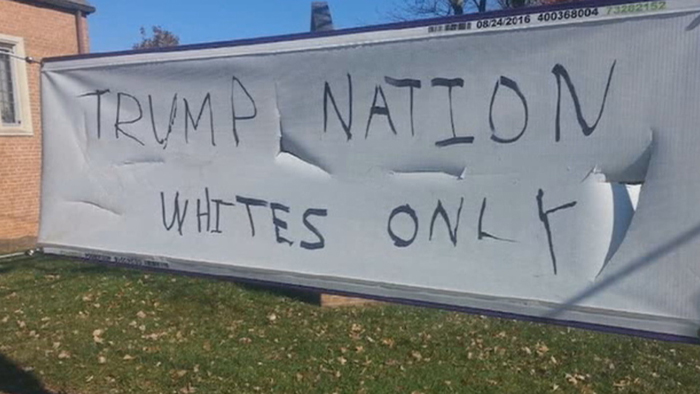 08/24/2016 400368004 73202152
TRUMP NATION
WHITES ONLY